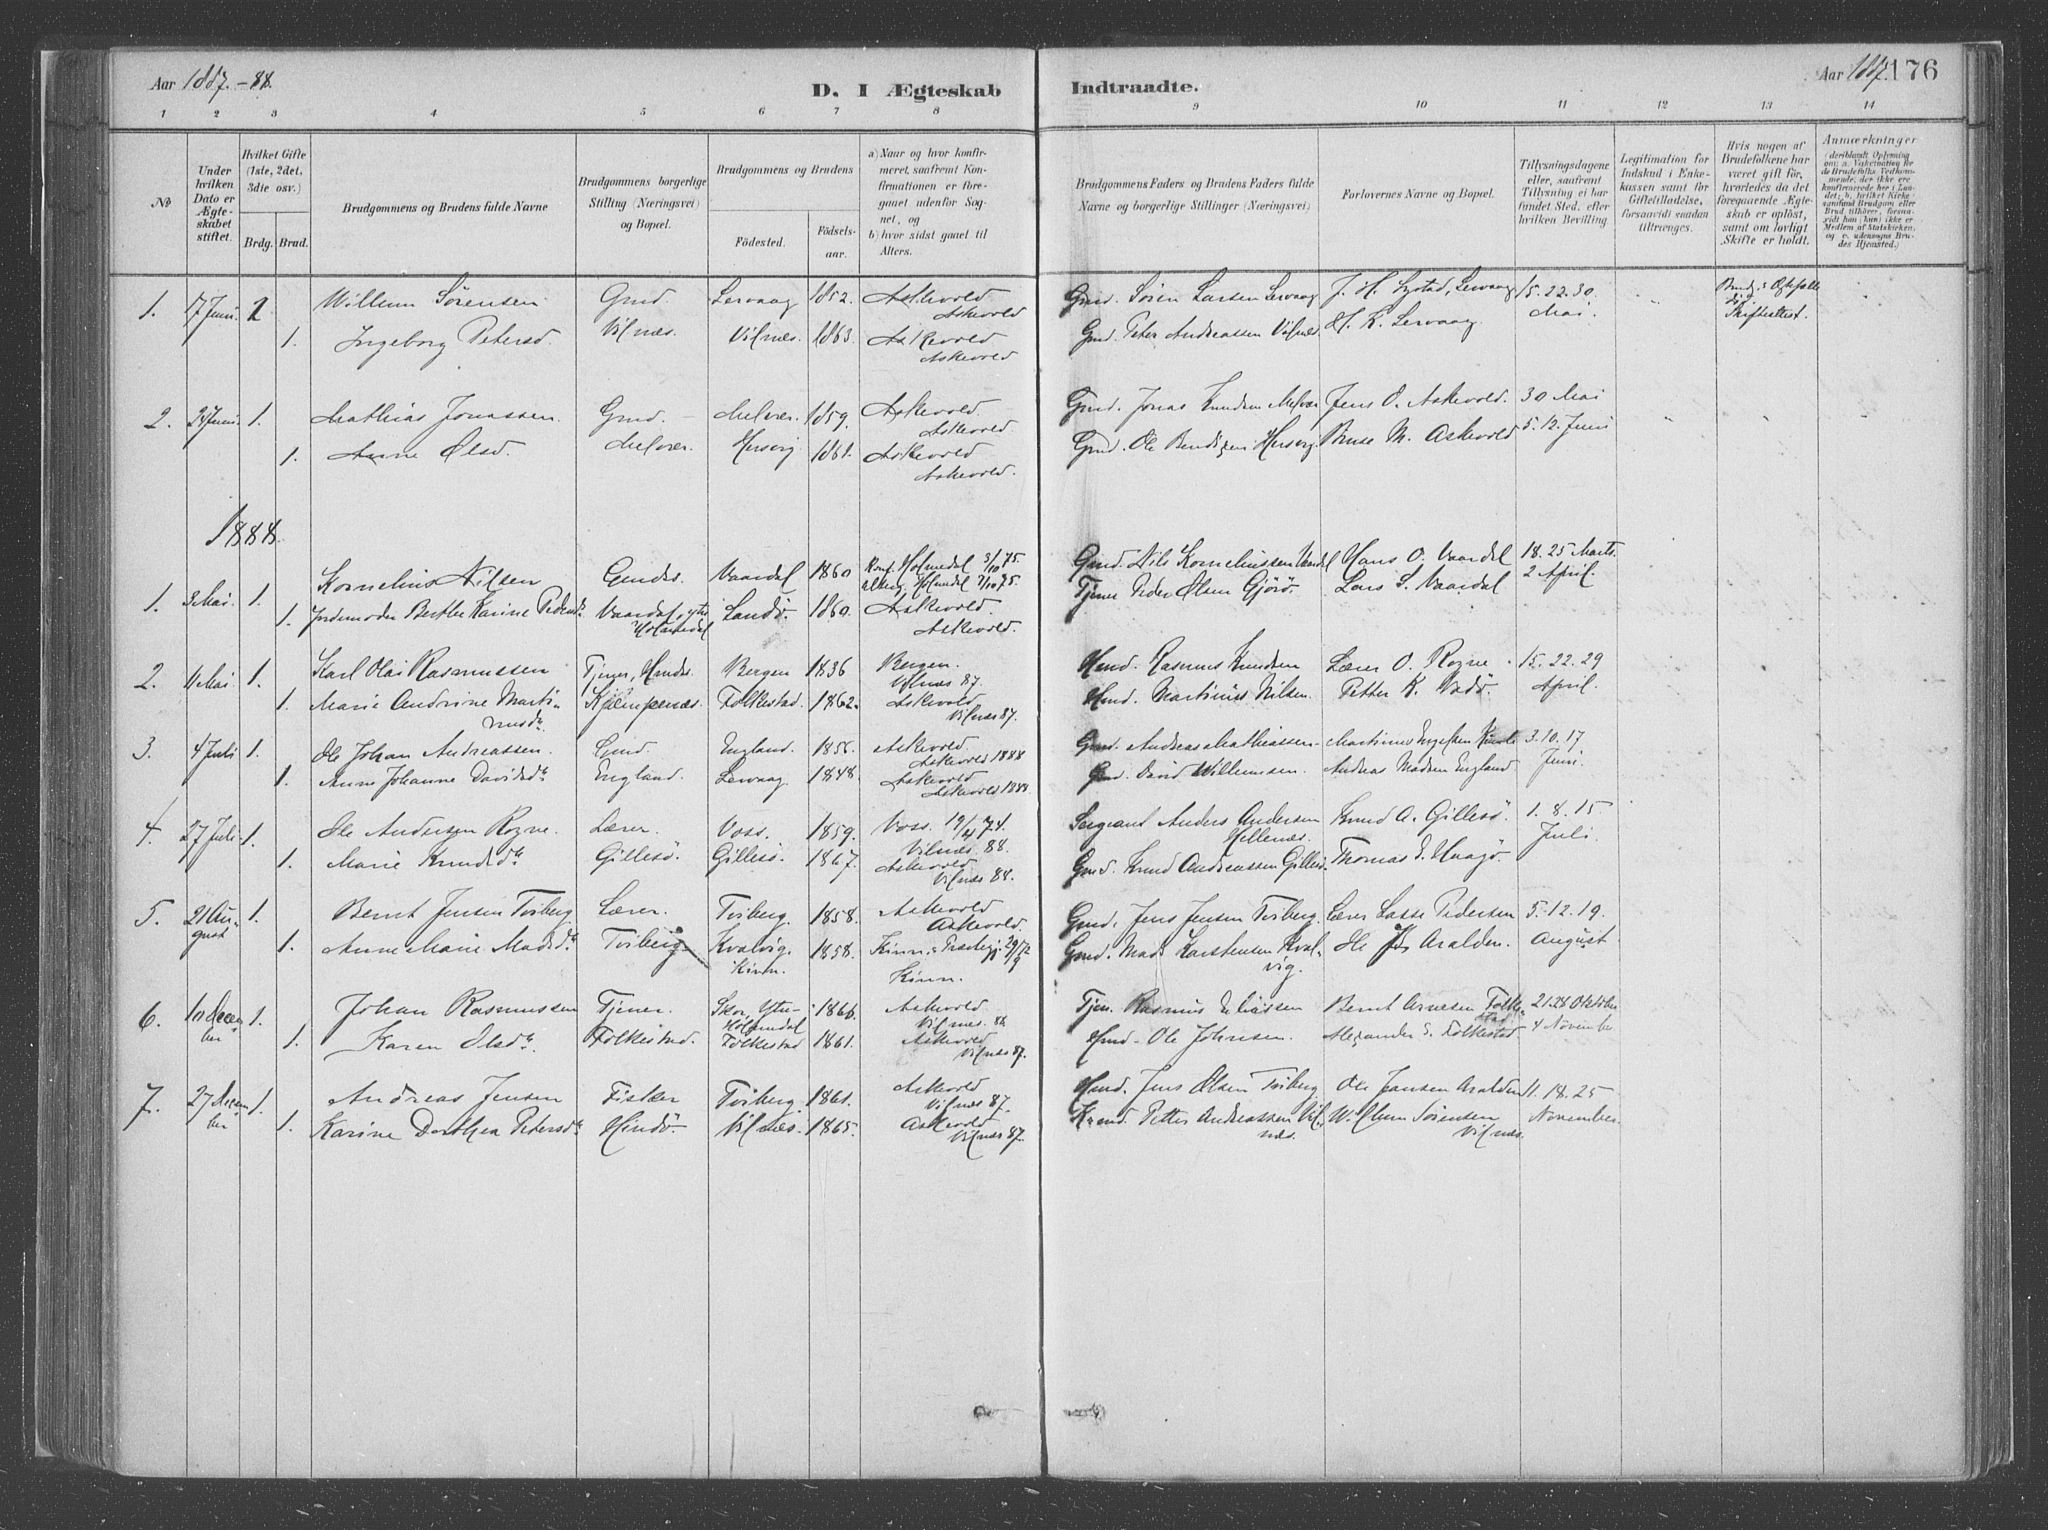 Aar 1887.-88.
D. I Ægteskab Indtraadte.
Aar 1887. 176
1 2 3 4 5 6 7 8 9 10 11 12 13 14
No
Under hvilken Dato er Ægteskabet stiftet.
Hvilket Gifte (1ste, 2det, 3die osv.)
Brdg. Brud.
Brudgommens og Brudens fulde Navne
Brudgommens borgerlige Stilling (Næringsvei) og Bopæl.
Brudgommens og Brudens
Födested. Födselsaar.
a) Naar og hvor konfirmeret, saafremt Konfirmationen er foregaaet udenfor Sognet, og
b) hvor sidst gaaet til Alters.
Brudgommens Faders og Brudens Faders fulde Navne og borgerlige Stillinger (Næringsvei)
Forlovernes Navne og Bopæl.
Tillysningsdagene eller, saafremt Tillysning ei har fundet Sted, efter hvilken Bevilling
Legitimation for Indskud i Enkekassen samt for Giftetilladelse, forsaavidt saadan tiltrænges.
Hvis nogen af Brudefolkene har været gift før, hvorledes da det foregaaende Ægteskab er oplöst, samt om lovligt Skifte er holdt.
Anmærkninger
(deriblandt Oplysning om: a. Vakcination for de Brudefolks Vedkommende, der ikke ere konfirmerede her i Landet; b. hvilket Kirkesamfund Brudgom eller Brud tilhörer, forsaavidt han (hun) ikke er Medlem af Statskirken, og c. udensogns Brudes Hjemsted.)
1. 7 Juni 2 Willum Sörensen Gmd. Lervaag 1852. Askevold Askevold Gmd. Sören Larsen Lervaag J. H. Systad, Lervaag 15. 22. 30. Mai
1. Ingeborg Petersd. Vilnæs. Vilnæs. 1863. Askevold Askevold Gmd. Peter Andreassen Vilnæs. H. K. Lervaag
Skifteattest.
2. Juni. 1. Mathias Jonassen Gmd. Melvær. 1859. Askevold. Askevold. Gmd. Jonas Knudsen Melvær Jens O. Askevold. 30 Mai
1. Anne Olsd. Melvær. Hersvig 1861. Askevold Askevold. Gmd. Ole Hersvig M. Askevold 5. 12. Juni
1888.
1. 3 Mai. 1. Kornelius Nilsen Gmdes. Vaardal 1860 Konf. Holmedal 3/10 75. Holmedal 7/10 75. Gmd. Nils Korneliussen Hans O. Vaardal 18. 25 Marts.
1. Jordemoder Berthe Karine Pedersd. Vaardal, ytre Holmedal Landö. 1860. Askevold. Askevold. Tjener Peder Olsen Gjörö. Lars S. Vaardal 2 April.
2. Mai 1. Karl Olai Rasmussen Tjener, Bergen 1836 Bergen. Vilnæs 87. Hmd. Rasmus Knudsen Lærer O. Rogne 15. 22. 29
1. Marie Andrine Martinusdr. Kjempenæs. Folkestad. 1862. Askevold. Vilnæs 87. Hmd. Martinus Nilsen. Petter K. April
3. 4 Juli 1. Ole Johan Andreassen. Gmd. England. 1856. Askevold. Askevold 1888 Gmd. Andreas Mathiassen Martinus 3. 10. 17
1. Anne Johanne Davidsdr. England. Lervaag. 1848. Askevold Askevold 1888 Gmd. David Willumsen. Andreas Madsen England Juni.
4. 27 Juli 1. Ole Andersen Rogne. Lærer. Voss. 1859. Voss. 19/4 74. Vilnæs. 88. Sergeant Anders Andersen Hellenæs. Knud A. Gillesö. 1. 8. 15
1. Marie Knudsdr. Gillesö. Gillesö. 1867. Askevold Vilnæs 88. Gmd. Knud Andreassen Gillesö. Thomas E. Haagö. Juli
5. 21 August 1. Bernt Jensen Tviberg Lærer. Tviberg. 1858. Askevold Askevold. Gmd. Jens Jensen Tviberg. Lærer Lasse Pedersen 5. 12. 19.
1. Anne Marie Madsdr. Tviberg Kvalvig. Kinn. 1858. Kinn 29/9 72 Kinn. Gmd. Mads Karstensen Kvalvig. Ole Aralden. August
6. December 1. Johan Rasmussen Tjener. Skor, Ytre Holmedal 1866 Askevold Vilnæs. Tjen. Rasmus Eliassen Bernt Arnesen Folkestad 21. 28 Oktober
1. Karen Olsdr. Folkestad. Folkestad 1861. Askevold Vilnæs 87. Hmd. Ole Johnsen. Alexander E. Folkestad. 4 November
7. 27 December 1. Andreas Jensen Fisker Tviberg. 1861. Askevold Vilnæs 87. Hmd. Jens Olsen Tviberg Ole Jensen Aralden 11. 18. 25
1. Karine Dorthea Petersdr. Hindö. Vilnæs. 1865. Askevold Vilnæs 87. Petter Andreassen Vilnæs. Wilhelm Sörensen Vilnæs. November.